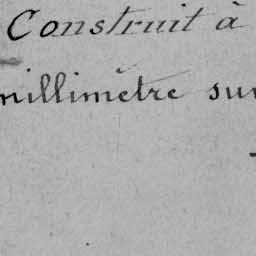 Construit à
millimètre sur